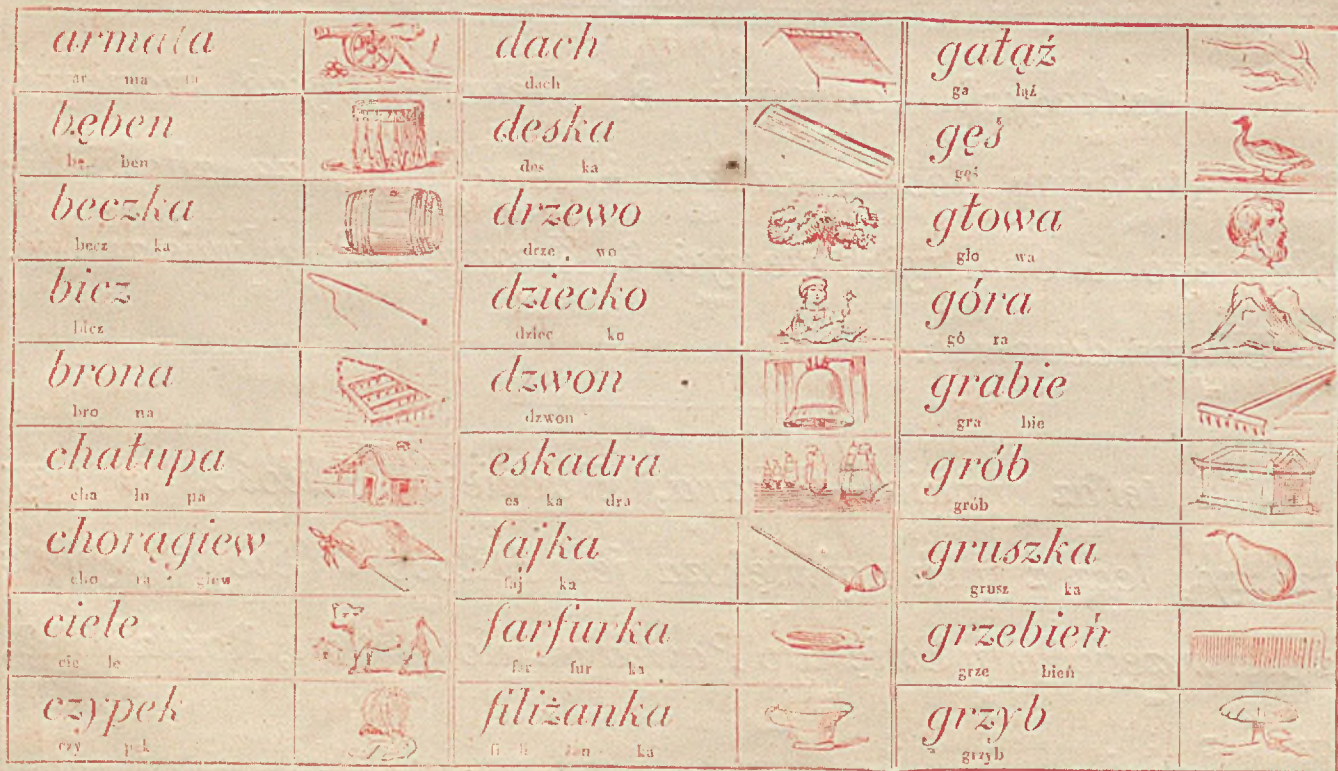 armata
ar ma ta
bęben
bę ben
beczka
becz ka
bicz
bicz
brona
bro na
chałupa
cha łu pa
chorągiew
cho rą giew
ciele
cie le
czypek
czy pek
dach
dach
deska
des ka
drzewo
drze wo
dziecko
dziec ko
dzwon
dzwon
eskadra
es ka dra
fajka
faj ka
farfurka
far fur ka
filiżanka
fi li żan ka
gałąź
ga łąź
gęś
gęś
głowa
gło wa
góra
gó ra
grabie
gra bie
grób
grób
gruszka
grusz ka
grzebień
grze bień
grzyb
grzyb